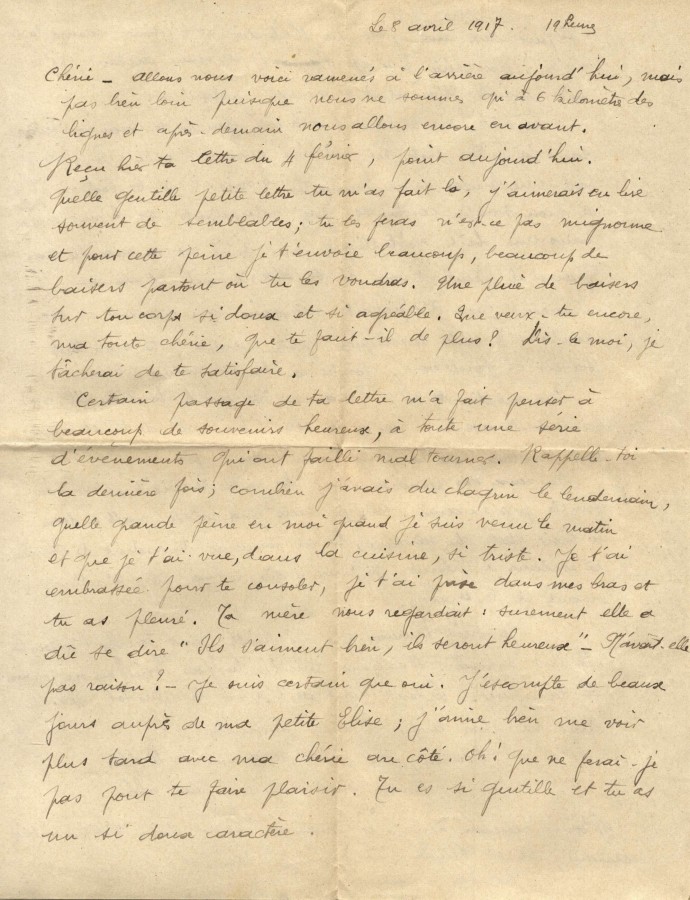 Le 8 avril 1917. 19 heures
Chérie – allons nous voici ramenés à l'arrière aujourd'hui, mais
pas bien loin puisque nous ne sommes qu'à 6 kilomètre des
lignes et après-demain nous allons encore en avant.
Reçu hier ta lettre du 4 février, point aujourd'hui.
Quelle gentille petite lettre tu m'as fait là, j'aimerais en lire
souvent de semblables; tu les feras n'est-ce pas mignonne
et pour cette peine je t'envoie beaucoup, beaucoup de
baisers partout où tu les voudras. Une pluie de baisers
sur ton corps si doux et si agréable. Que veux-tu encore,
ma toute chérie, que te faut-il de plus? Dis-le moi, je
tâcherai de te satisfaire.
Certain passage de ta lettre m'a fait penser à
beaucoup de souvenirs heureux, à toute une série
d'événements qui ont failli mal tourner. Rappelle-toi
la dernière fois; combien j'avais du chagrin le lendemain,
quelle grande peine en moi quand je suis venu le matin
et que je t'ai vue, dans la cuisine, si triste. Je t'ai
embrassée pour te consoler, je t'ai prise dans mes bras et
tu as pleuré. Ta mère nous regardait : surement elle a
dû se dire "Ils s'aiment bien, ils seront heureux" – N'avait-elle
pas raison? – Je suis certain que oui. J'escompte de beaux
jours auprès de ma petite Elise; j'aime bien me voir
plus tard avec ma chérie au côté. Oh! que ne ferai-je
pas pour te faire plaisir. Tu es si gentille et tu as
un si doux caractère.